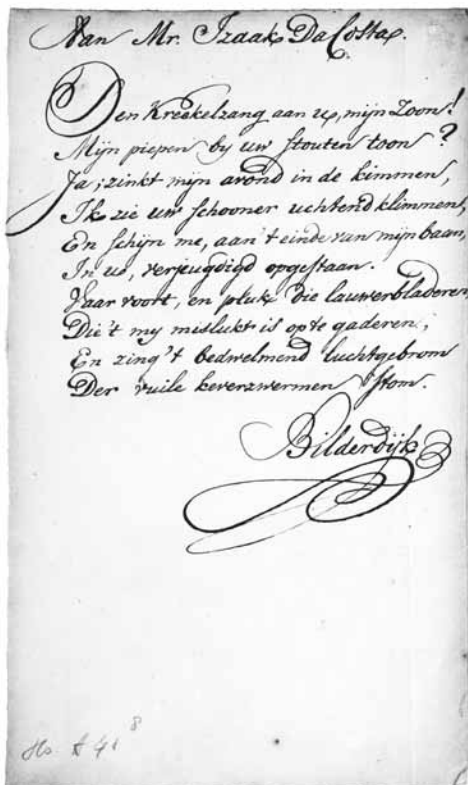 Aan Mr. Izaak Da Costa.
Den Kreakelzang aan u, mijn Zoon!
Mijn piepen by uw stouten toon?
Ja; zinkt mijn avond in de kimmen,
Ik zie uw schooner uchtend klimmen,
En schijn me, aan 't einde van mijn baan,
In u, verjeugdigd opgestaan.
Vaar voort, en pluk die lauwerbladeren,
Die 't my mislukt is op te gaderen;
En zing 't bedwelmend luchtgebrom
Der vuile keverzwermen stom.
Bilderdijk
Hs. A 41 8